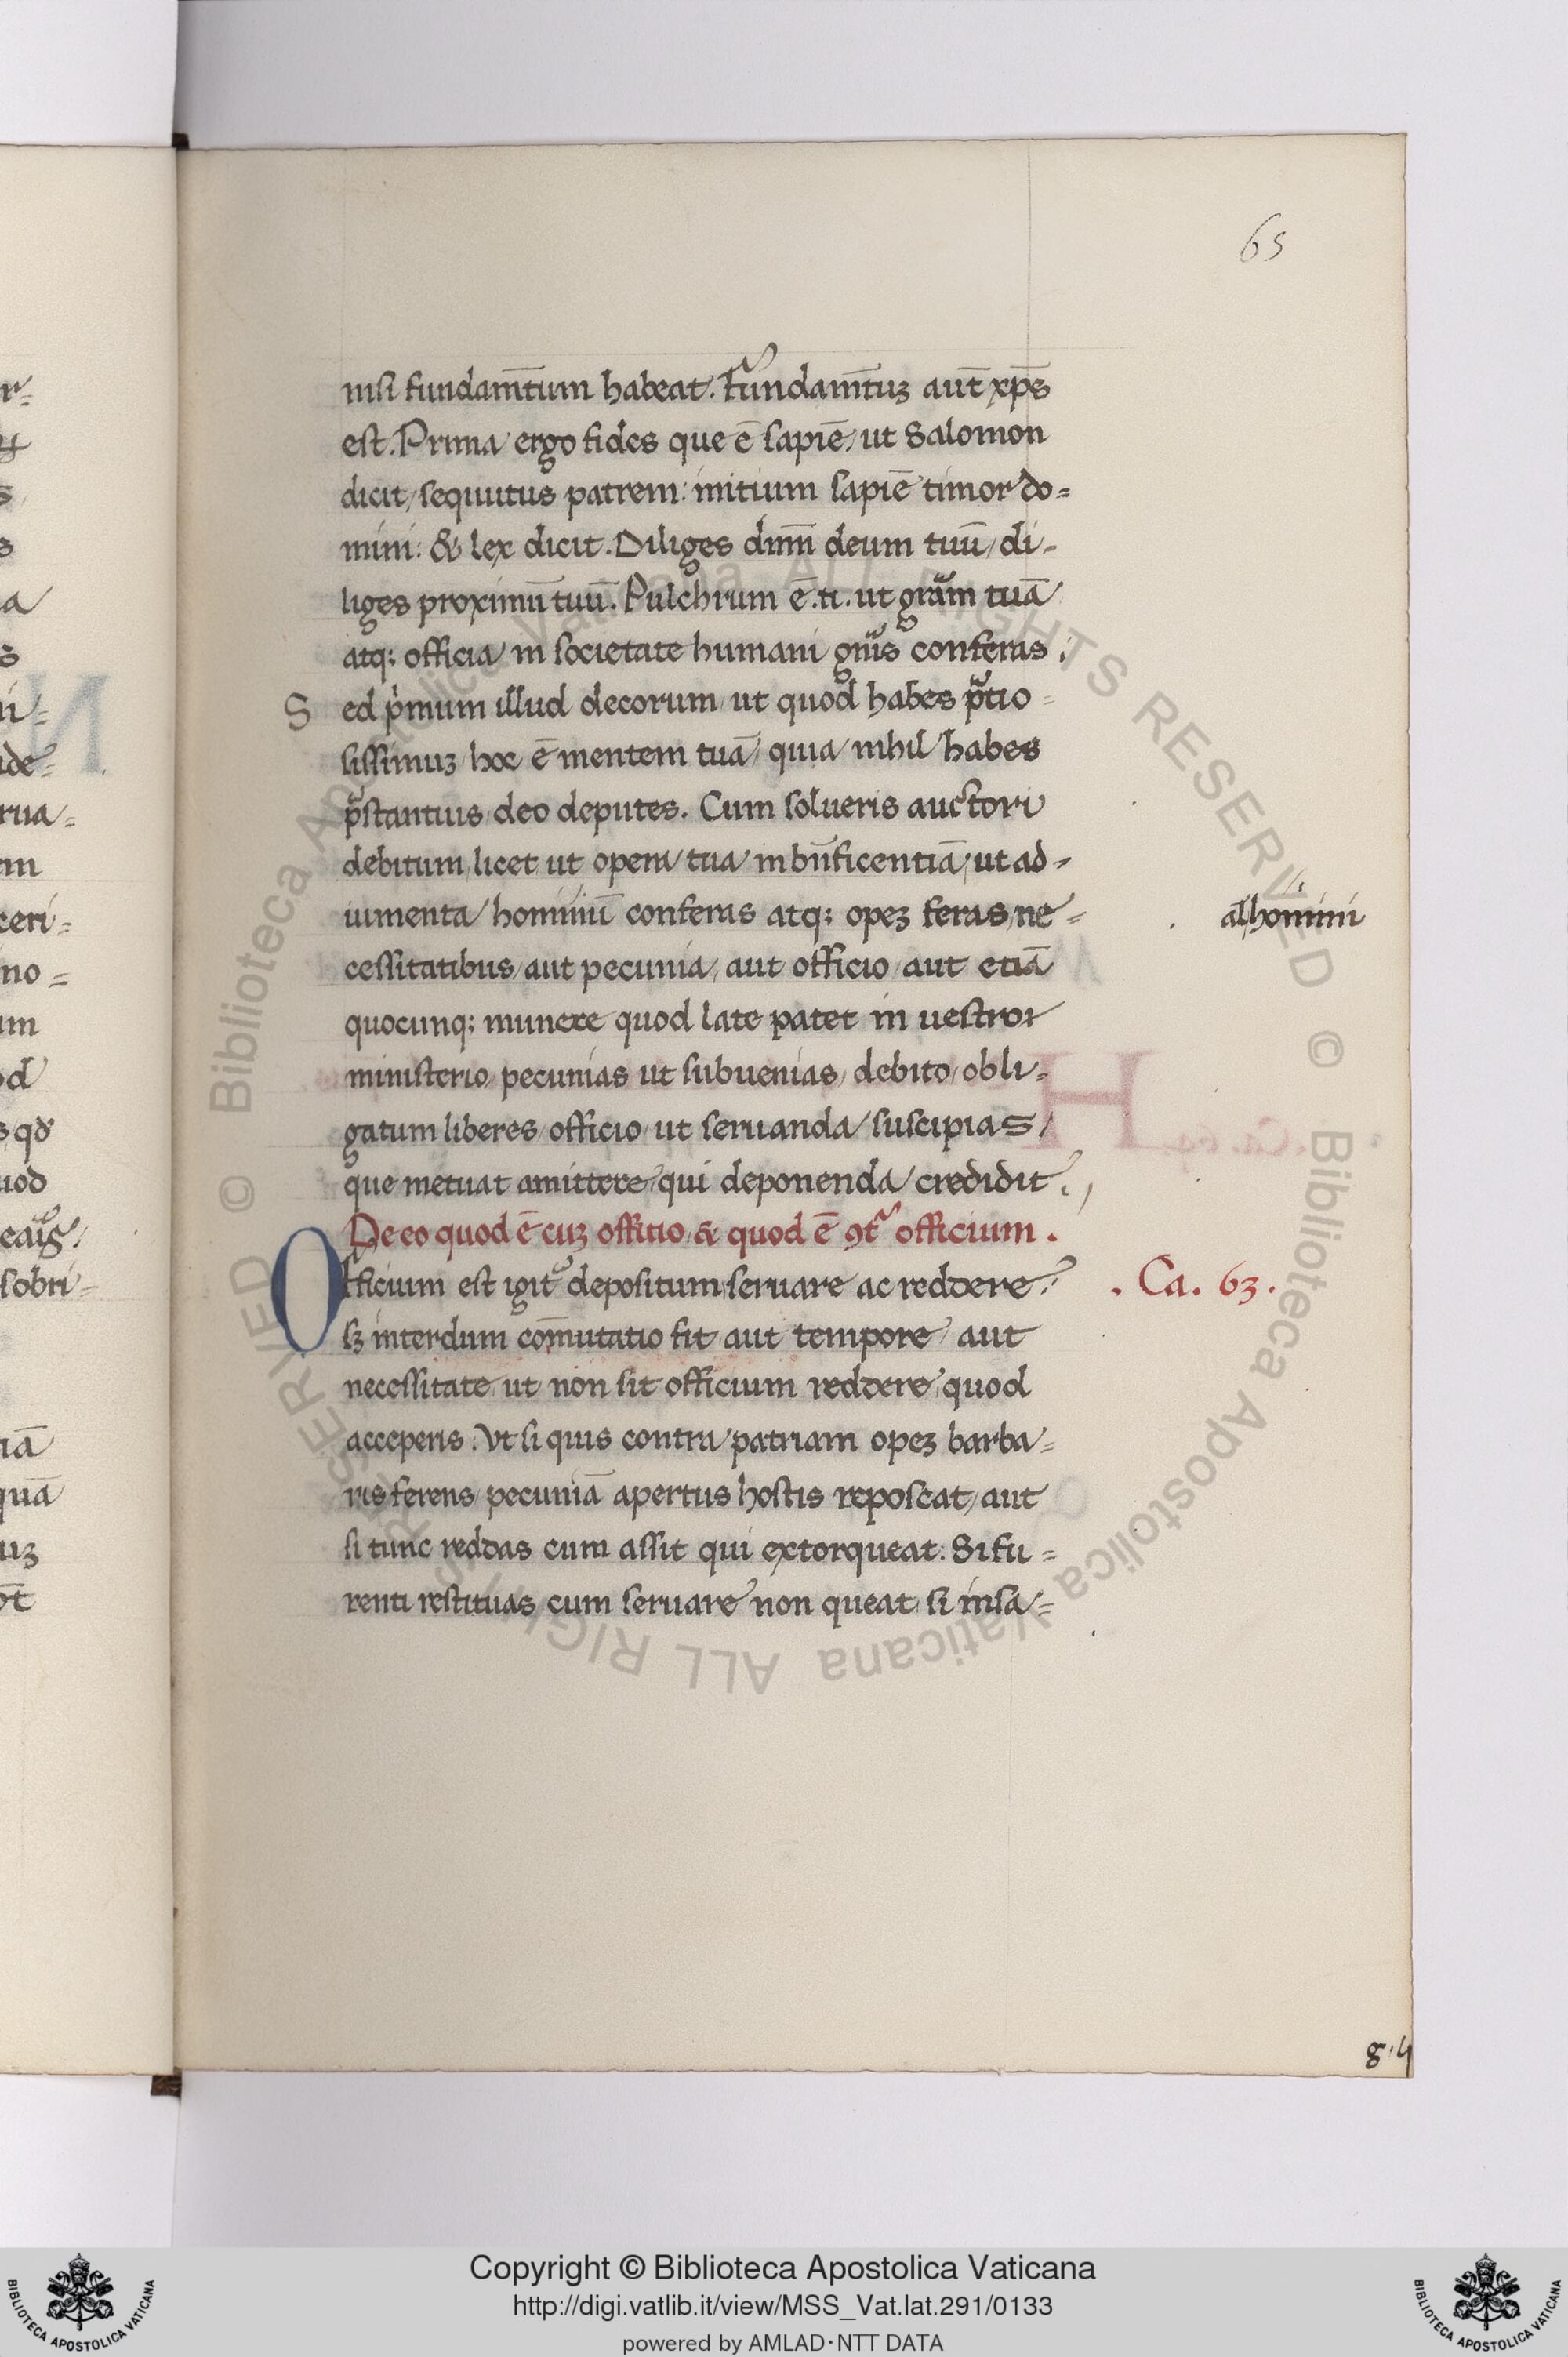 65
nisi fundam̄tum habeat. Fundam̄tuꝫ aut̄ xp̄s
est. Prima ergo fides que ē sapiē, ut Salomon
dicit, sequutus patrem: initium sapiē timor do=
mini: & lex dicit. Diliges dnm̄ deum tuū, di-
liges proximū tuū. Pulchrum ē .n. ut gram̄ tuā
atq; officia in societate humani gn̄is conferas.
Sed pͥmum illud decorum ut quod habes p̄tio=
sissimuꝫ hoc ē mentem tuā, quia nihil habes
p̄stantius deo deputes. Cum solueris auctori
debitum, licet ut opera tua in bn̄ficentiā, ut ad-
iumenta hominiū conferas atq; opeꝫ feras, ne=
al̄ homini
cessitatibus aut pecunia, aut officio aut etiā
quocunq; munere quod late patet in uestror
ministerio, pecunias ut subuenias, debito obli-
gatum liberes, officio ut seruanda suscipias,
que metuat amittere, qui deponenda credidit.
De eo quod ē cuꝫ offitio, & quod ē ꝯt͛ officium.
Officium est igit᷑ depositum seruare ac reddere:
. Ca. 63.
sꝫ interdum com̄utatio fit aut tempore aut
necessitate, ut non sit officium reddere, quod
acceperis. Vt si quis contra patriam opeꝫ barba=
ris ferens pecuniā apertus hostis reposcat, aut
si tunc reddas cum assit qui extorqueat. Si fu=
renti restituas cum seruare non queat, si insa=
g·4
© Biblioteca Apostolica Vaticana ALL RIGHTS RESERVED © Biblioteca Apostolica Vaticana ALL RIGHTS RESERVED
Copyright © Biblioteca Apostolica Vaticana
http://digi.vatlib.it/view/MSS_Vat.lat.291/0133
powered by AMLAD·NTT DATA
BIBLIOTECA APOSTOLICA VATICANA
BIBLIOTECA APOSTOLICA VATICANA